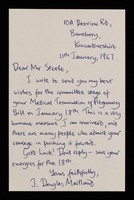 10A Derview Rd,
Banchory,
Kincardineshire
11th January, 1967
Dear Mr Steele,
I write to send you my best
wishes for the committee stage of
your Medical Termination of Pregnancy
Bill on January 18th. This is a very
humane measure, I am convinced, and
there are many people who admire your
courage in pushing it forward.
Good luck! Dont reply - save your
energies for the 18th.
Yours faithfully,
J. Douglas Maitland